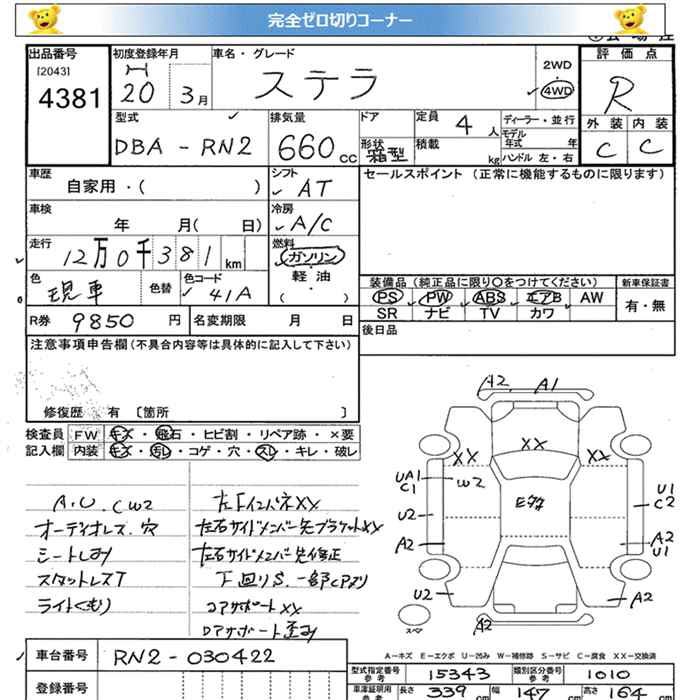 完全ゼロ切りコーナー
出品番号 初度登録年月 車名・グレード 2WD 評価点
[2043] 4381 20 3月 ステラ ・ 4WD R
型式 排気量 ドア 定員 4人 ディーラー・並行 外装 内装
DBA-RN2 660cc 形状 箱型 積載 kg モデル年式 年 C C
ハンドル 左・右
車歴 シフト セールスポイント (正常に機能するものに限ります)
自家用・( ) AT
車検 冷房
年 月( 日) A/C
走行 燃料
12万0千381km ガソリン
軽油
( )
色 色替 色コード 装備品 (純正品に限り○をつけてください) 新車保証書
現車 41A PS PW ABS エアB AW 有・無
SR ナビ TV カワ
R券 9850円 名変期限 月 日 後日品
注意事項申告欄 (不具合内容等は具体的に記入して下さい)
修復歴 有 〔箇所 〕
検査員 FW キズ・飛石・ヒビ割・リペア跡・×要
記入欄 内装 キズ・汚レ・コゲ・穴・スレ・キレ・破レ
A.U. CW2
オーディオレス.穴
シートしみ
スタットレスT
ライトくもり
左FインパネXX
左右サイドメンバー先ブラケットXX
左右サイドメンバー先修正
下回りS.一部CPスリ
コアサポートXX
ロアサポート歪み
A2 A1
XX
XX XX
UA1
C1
W2
U2
A2
U2
A2
U1
C2
A2
U1
A2
スペア
A-キズ E-エクボ U-凹み W-補修跡 S-サビ C-腐食 XX-交換済
車台番号 RN2-030422
登録番号
型式指定番号 参考 15343 類別区分番号 参考 1010
車庫証明用 参考 長さ 339cm 幅 147cm 高さ 164cm